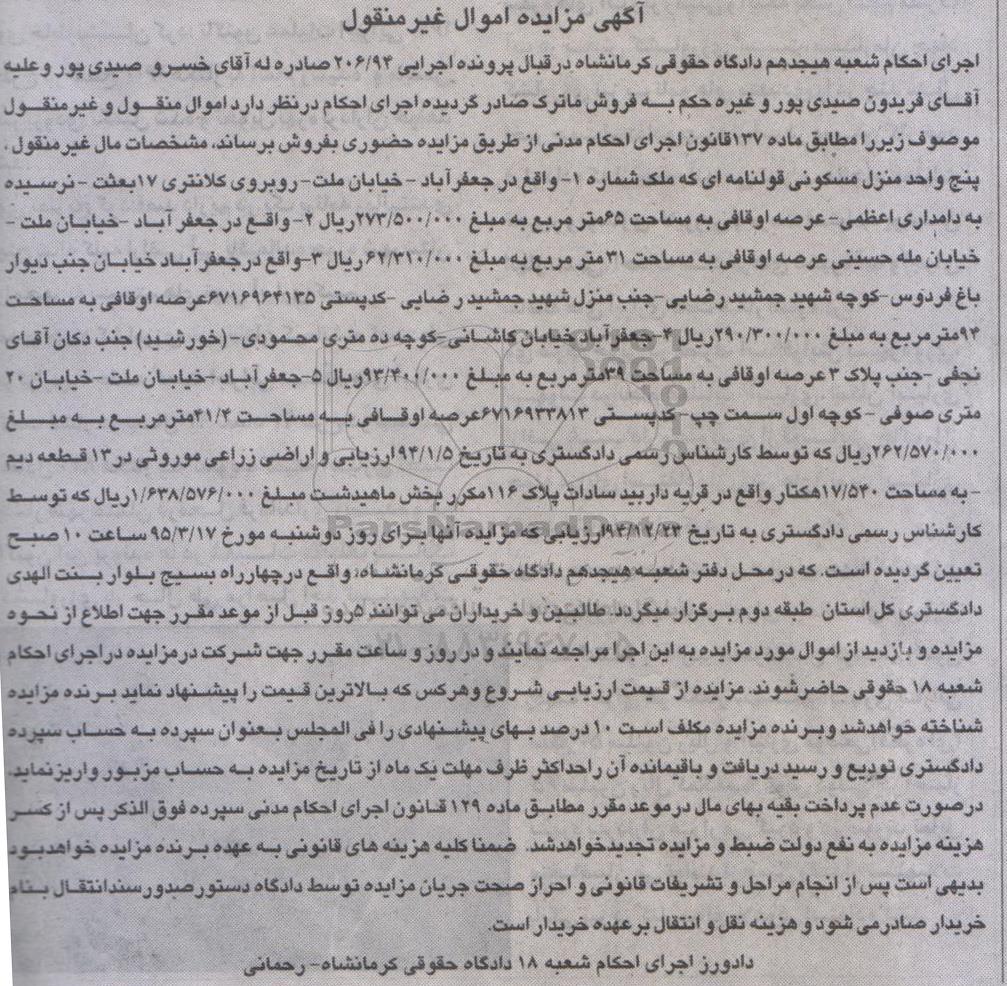 آگهی مزایده اموال غیر منقول
اجرای احکام شعبه هیجدهم دادگاه حقوقی کرمانشاه درقبال پرونده اجرایی ۲۰۶/۹۴ صادره له آقای خسرو صیدی پور و علیه
آقای فریدون صیدی پور و غیره حکم به فروش ماترک صادر گردیده اجرای احکام درنظر دارد اموال منقول و غیر منقول
موصوف زیر را مطابق ماده ۱۳۷قانون اجرای احکام مدنی از طریق مزایده حضوری بفروش برساند، مشخصات مال غیر منقول .
پنج واحد منزل مسکونی قولنامه ای که ملک شماره ۱- واقع در جعفرآباد - خیابان ملت- روبروی کلانتری ۱۷بعثت - نرسیده
به دامداری اعظمی- عرصه اوقافی به مساحت ۶۵متر مربع به مبلغ ۲۷۳/۵۰۰/۰۰۰ریال ۲- واقع در جعفر آباد -خیابان ملت -
خیابان مله حسینی عرصه اوقافی به مساحت ۳۱متر مربع به مبلغ ۶۲/۳۱۰/۰۰۰ریال ۳-واقع درجعفرآباد خیابان جنب دیوار
باغ فردوس-کوچه شهید جمشید رضایی-جنب منزل شهید جمشید رضایی -کدپستی ۶۷۱۶۹۶۴۱۳۵عرصه اوقافی به مساحت
۹۴مترمربع به مبلغ ۲۹۰/۳۰۰/۰۰۰ریال ۴-جعفرآباد خیابان کاشانی-کوچه ده متری محمودی-(خورشید) جنب دکان آقای
نجفی -جنب پلاک ۳ عرصه اوقافی به مساحت ۳۹مترمربع به مبلغ ۹۳/۴۰۰/۰۰۰ریال ۵-جعفرآباد -خیابان ملت -خیابان ۲۰
متری صوفی - کوچه اول سمت چپ-کدپستی ۶۷۱۶۹۳۳۸۱۳عرصه اوقافی به مساحت ۴۱/۴مترمربع به مبلغ
۲۶۲/۵۷۰/۰۰۰ریال که توسط کارشناس رسمی دادگستری به تاریخ ۹۴/۱/۵ارزیابی و اراضی زراعی موروثی در۱۳ قطعه دیم
- به مساحت ۱۷/۵۴۰هکتار واقع در قریه داربید سادات پلاک ۱۱۶مکرر بخش ماهیدشت مبلغ ۱/۶۳۸/۵۷۶/۰۰۰ریال که توسط
کارشناس رسمی دادگستری به تاریخ ۹۴/۱۲/۲۳ارزیابی که مزایده آنها برای روز دوشنبه مورخ ۹۵/۳/۱۷ ساعت ۱۰ صبح
تعیین گردیده است. که درمحل دفتر شعبه هیجدهم دادگاه حقوقی کرمانشاه، واقع درچهارراه بسیج بلوار بنت الهدی
دادگستری کل استان طبقه دوم برگزار میگردد. طالبین و خریداران می توانند ۵روز قبل از موعد مقرر جهت اطلاع از نحوه
مزایده و بازدید از اموال مورد مزایده به این اجرا مراجعه نمایند و در روز و ساعت مقرر جهت شرکت درمزایده دراجرای احکام
شعبه ۱۸ حقوقی حاضرشوند. مزایده از قیمت ارزیابی شروع وهرکس که بالاترین قیمت را پیشنهاد نماید برنده مزایده
شناخته خواهدشد وبرنده مزایده مکلف است ۱۰ درصد بهای پیشنهادی را فی المجلس بعنوان سپرده به حساب سپرده
دادگستری تودیع و رسید دریافت و باقیمانده آن راحداکثر ظرف مهلت یک ماه از تاریخ مزایده به حساب مزبور واریزنماید.
درصورت عدم پرداخت بقیه بهای مال درموعد مقرر مطابق ماده ۱۲۹ قانون اجرای احکام مدنی سپرده فوق الذکر پس از کسر
هزینه مزایده به نفع دولت ضبط و مزایده تجدیدخواهدشد. ضمنا کلیه هزینه های قانونی به عهده برنده مزایده خواهدبود
بدیهی است پس از انجام مراحل و تشریفات قانونی و احراز صحت جریان مزایده توسط دادگاه دستور صدور سندانتقال بنام
خریدار صادرمی شود و هزینه نقل و انتقال برعهده خریدار است.
دادورز اجرای احکام شعبه ۱۸ دادگاه حقوقی کرمانشاه- رحمانی